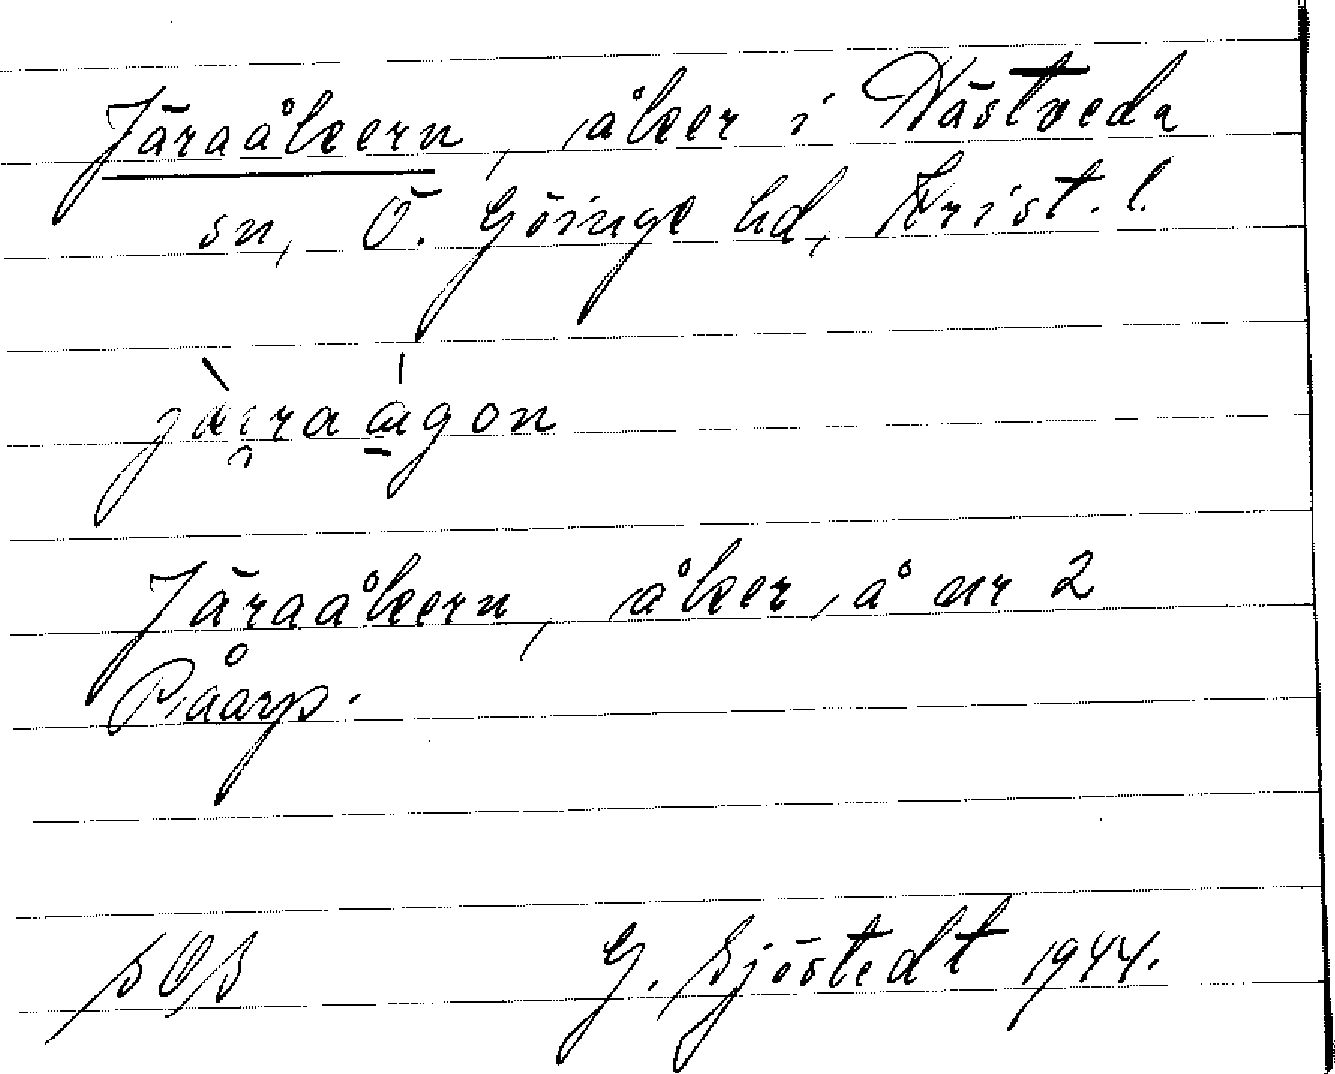 Järaåkern, åker i Västveda
sn, Ö. Göinge hd, Krist. l.
Järaåkern, åker å nr 2
Påarp.
sOs G. Sjöstedt 1944.